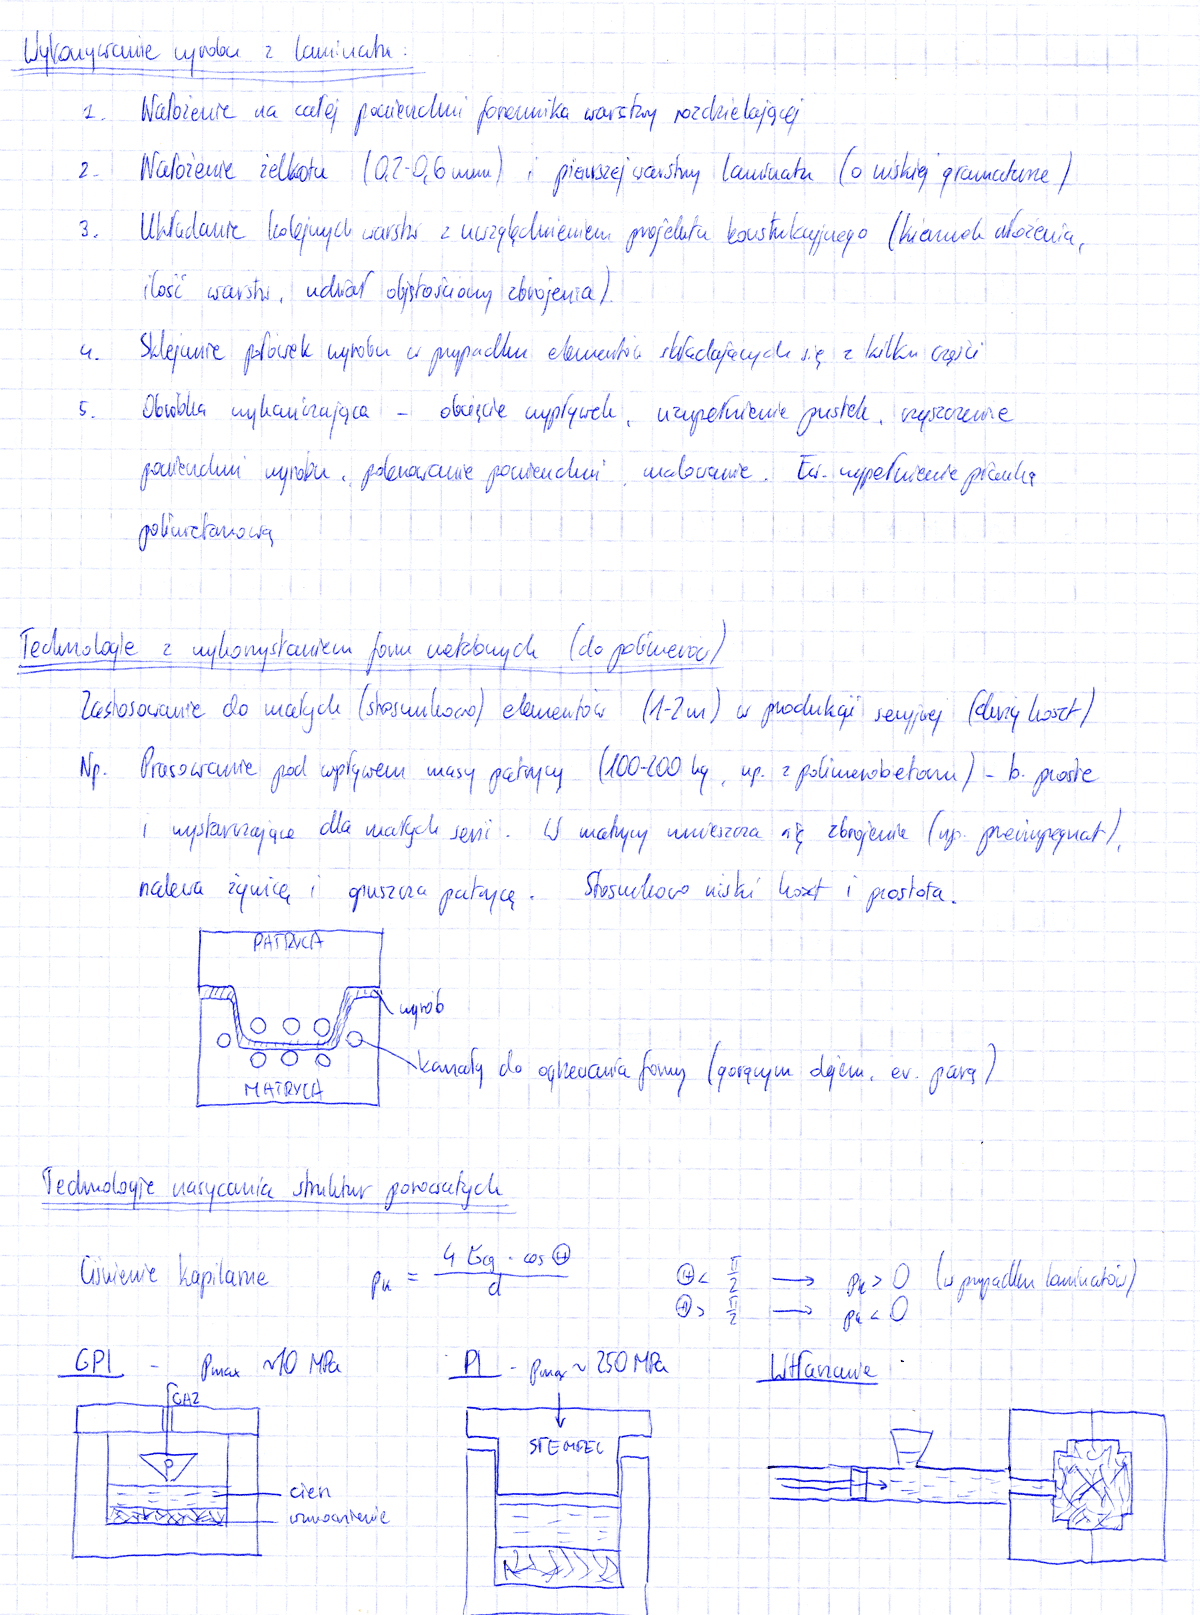 Wykonywanie wyrobu z laminatu:
1. Nałożenie na całej powierzchni foremnika warstwy rozdzielającej
2. Nałożenie żelkotu (0,2-0,6 mm) i pierwszej warstwy laminatu (o niskiej gramaturze)
3. Układanie kolejnych warstw z uwzględnieniem projektu konstrukcyjnego (kierunek ułożenia,
ilość warstw, udział objętościowy zbrojenia).
4. Sklejanie połówek wyrobu w przypadku elementów składających się z kilku części
5. Obróbka wykańczająca - obcięcie wypływek, uzupełnienie pustek, czyszczenie
powierzchni wyrobu, polerowanie powierzchni, malowanie. Ew. wypełnienie pianką
poliuretanową
Technologie z wykorzystaniem form metalowych (do polimerów)
Zastosowanie do małych (stosunkowo) elementów (1-2m) w produkcji seryjnej (duży koszt)
Np. Prasowanie pod wpływem masy patrycy (100-200 kg, np. z polimerobetonu) - b. proste
i wystarczające dla małych serii. W matrycy umieszcza się zbrojenie (np. preimpregnat),
nalewa żywicę i opuszcza patrycę. Stosunkowo niski koszt i prostota.
PATRYCA
wyrób
kanały do ogrzewania formy (gorącym olejem, ew. parą)
MATRYCA
Technologie nasycania struktur porowatych
Ciśnienie kapilarne pk = 4 σcg · cos Θ / d
Θ < π/2 → pk > 0 (w przypadku laminatów)
Θ > π/2 → pk < 0
GPI - pmax ~10 MPa
PI - pmax ~ 250 MPa
Wtłaczanie:
GAZ
P
STEMPEL
ciecz
umocnienie